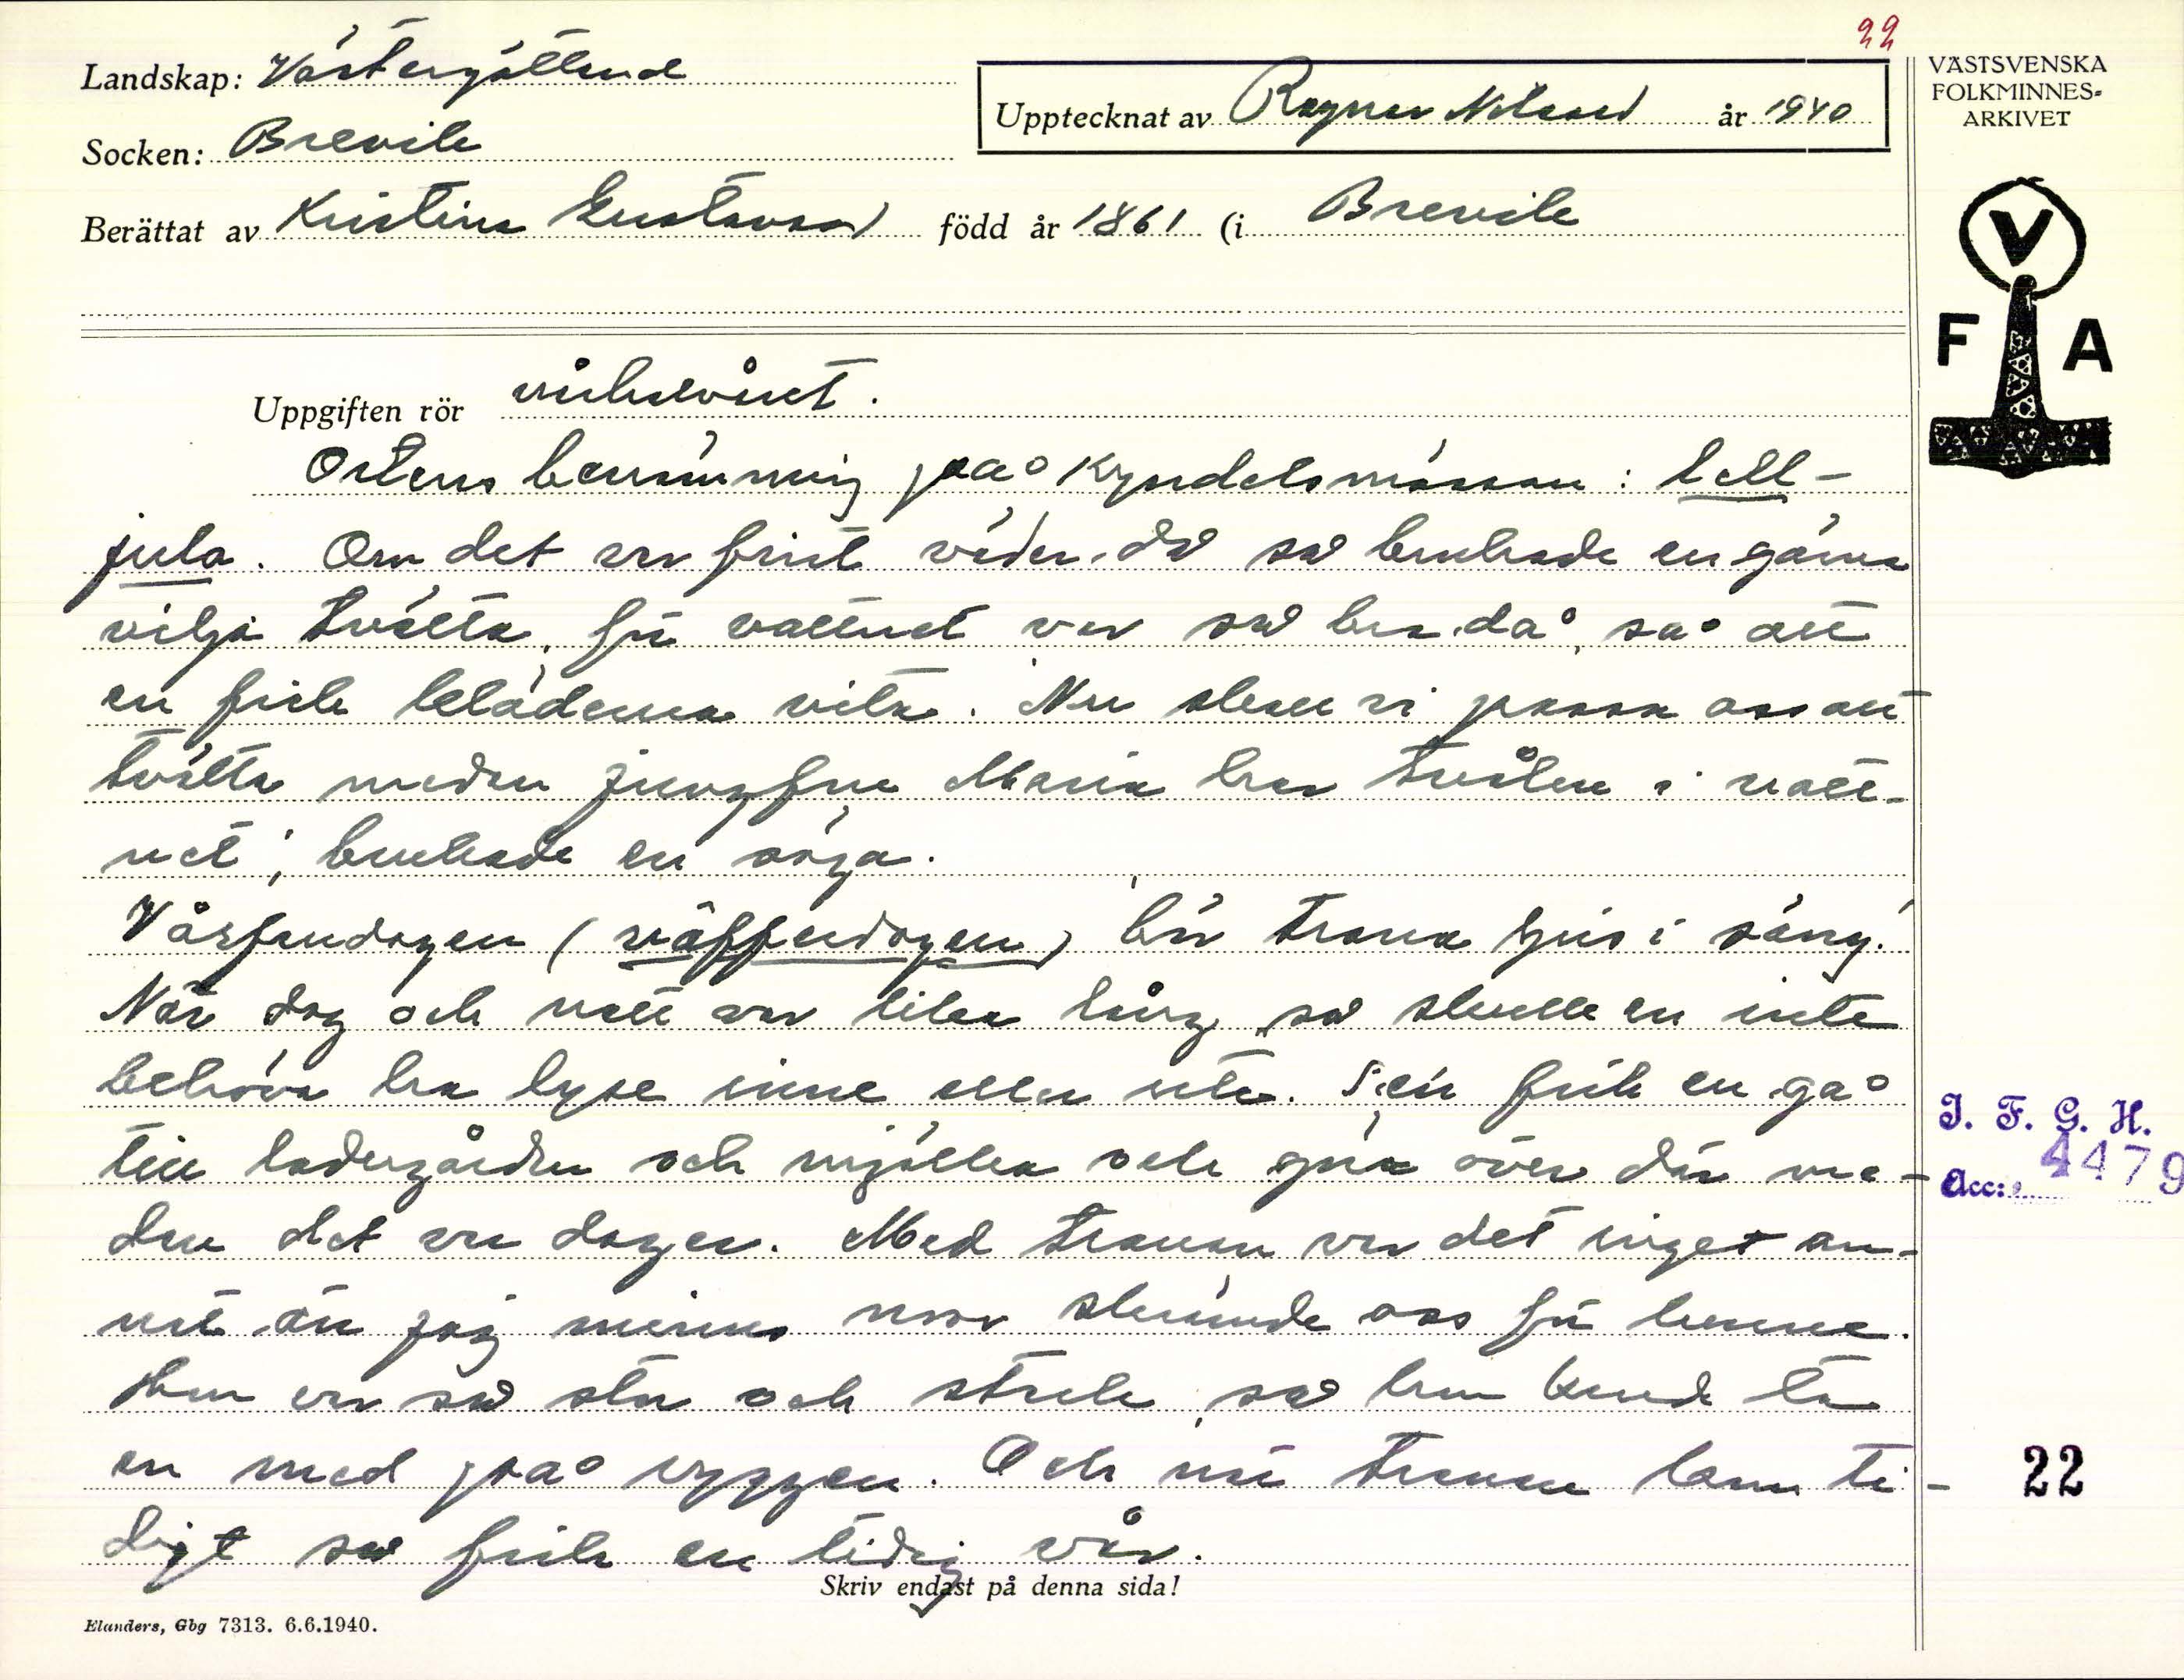 22
Landskap: Västergötland
Upptecknat av Ragnar Nilsson år 1940
VÄSTSVENSKA
FOLKMINNES-
ARKIVET
Socken: Brevik
Berättat av Kristina Gustavsson född år 1861 (i Brevik
V
F A
Uppgiften rör
Ortens benämning på Kyndelsmässan: lell-
jula. Om det var fint väder då så brukade en gärna
vilja tvätta, för vattnet var så bra då, så att
en fick kläderna vita. Nu skall vi passa oss att
tvätta medan jungfru Maria har tvålen i vatt-
net, brukade en säga.
Vårfrudagen (väfferdagen) bär trana ljus i säng.
När dag och natt var lika lång, så skulle en inte
behöva ha lyse inne eller ute. Sen fick en gå
till ladugården och mjölka och göra över där me-
dan det var dager. Med tranan var det inget an-
nat än jag minns mor skrämde oss för henne.
Hon var så stor och stark, så hon kunde ta
en med på ryggen. Och när tranan kom ti-
digt så fick en tidig vår.
I. F. G. H.
Acc: 4479
22
Skriv endast på denna sida!
Elanders, Gbg 7313. 6.6.1940.